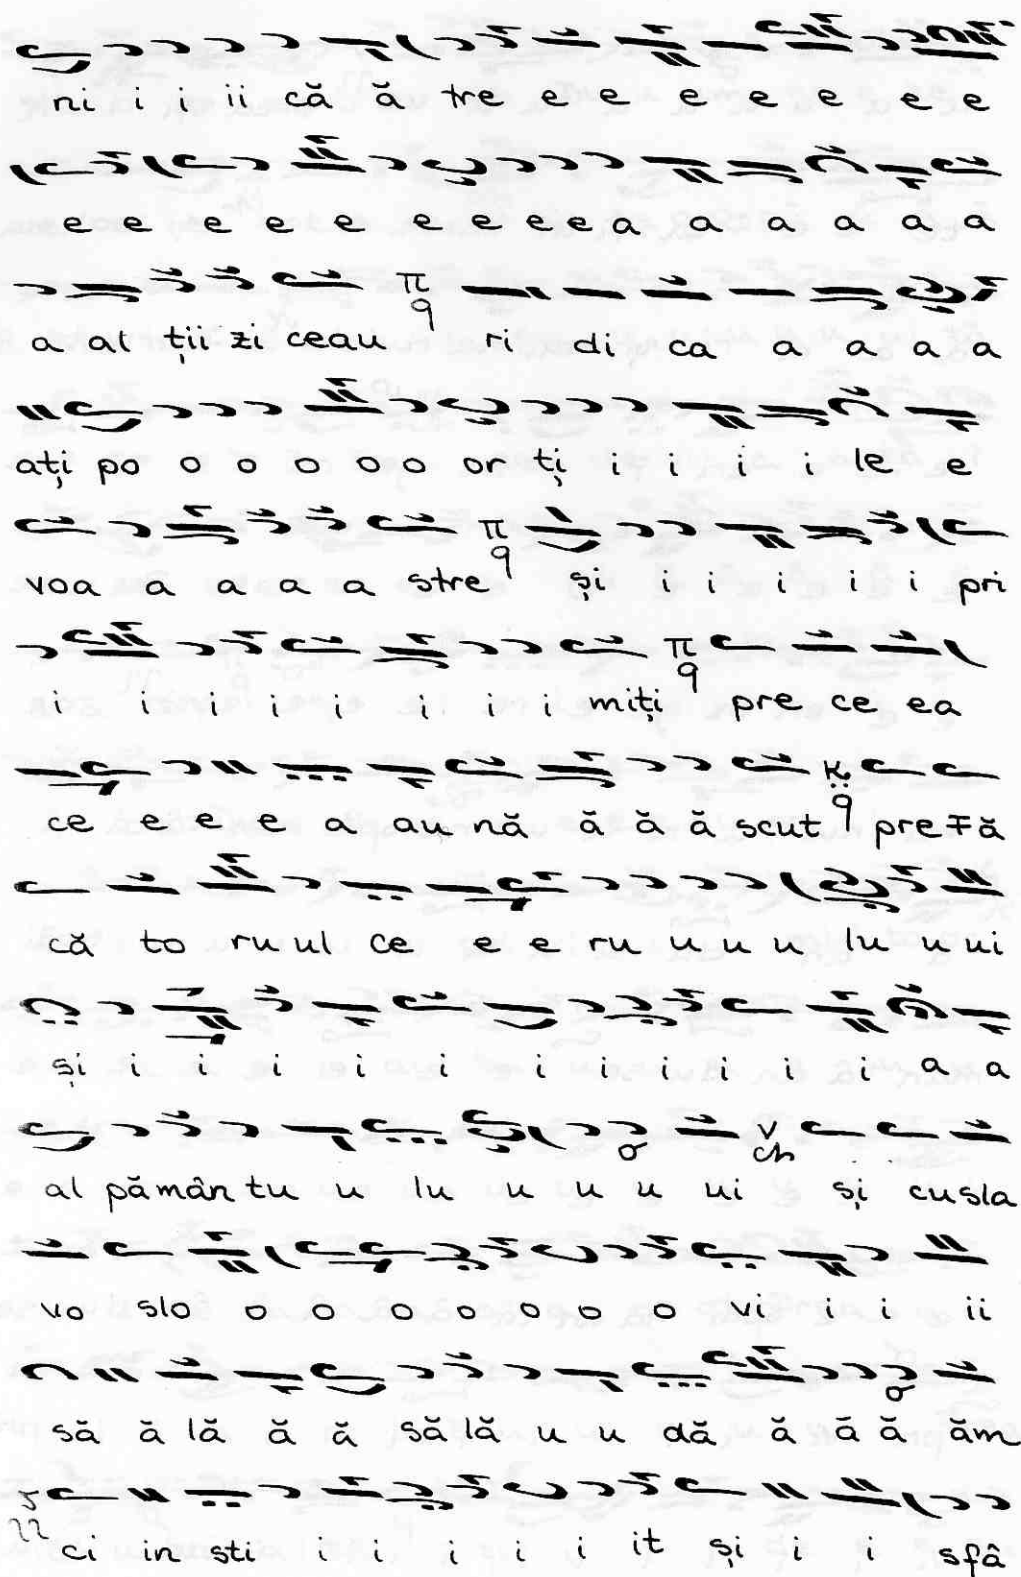 ni i i ii că ă tre e e e e e e e
e e e e e e e e e a a a a a a
a al ții zi ceau π q ri di ca a a a a
ați po o o o o o or ți i i i i le e
voa a a a a stre π q și i i i i i pri
i i i i i i i i miți π q pre ce ea
ce e e e a au nă ă ă ă scut κ q pre Fă
că to ru ul ce e e ru u u u lu u ui
și i i i i i i i i i i a a
al pămân tu u lu u u u ui și cu sla
vo slo o o o o o o o vi i i ii
să ă lă ă ă să lă u u dă ă ă ă ăm
ci in sti i i i i i it și i i sfâ